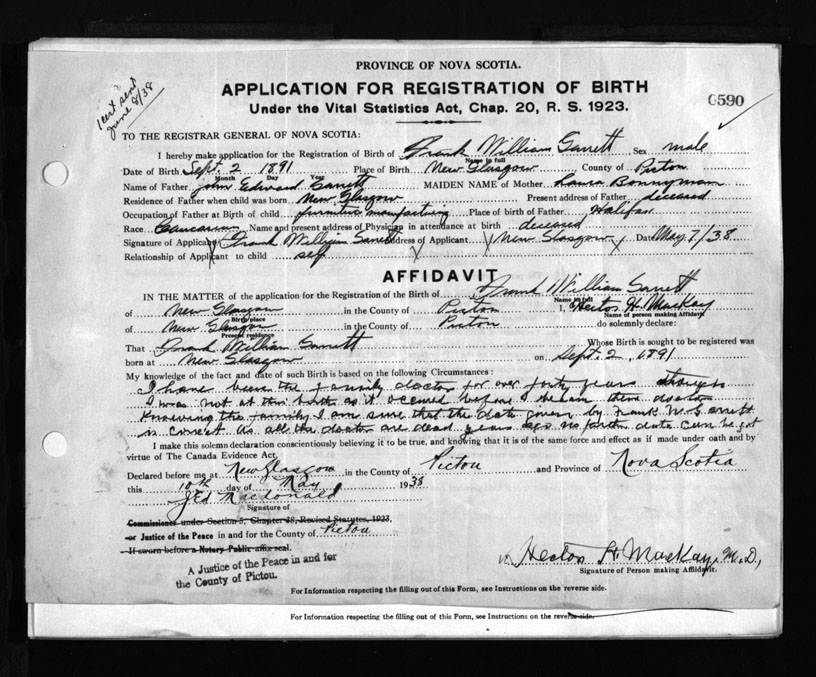 PROVINCE OF NOVA SCOTIA.
APPLICATION FOR REGISTRATION OF BIRTH
Under the Vital Statistics Act, Chap. 20, R. S. 1923.
0590
1 cert sent
June 8/38
TO THE REGISTRAR GENERAL OF NOVA SCOTIA:
I hereby make application for the Registration of Birth of Frank William Garrett Sex male
Name in full
Date of Birth Sept. 2 1891 Place of Birth New Glasgow County of Pictou
Month Day Year
Name of Father John Edward Garrett MAIDEN NAME of Mother Laura Bonnyman
Residence of Father when child was born New Glasgow Present address of Father deceased
Occupation of Father at Birth of child furniture manufacturing Place of birth of Father Halifax
Race Caucasian Name and present address of Physician in attendance at birth deceased
Signature of Applicant Frank William Garrett Address of Applicant New Glasgow Date May 7/38
Relationship of Applicant to child self
AFFIDAVIT
IN THE MATTER of the application for the Registration of the Birth of Frank William Garrett
Name in full
of New Glasgow in the County of Pictou I, Hector H. MacKay
Birthplace Name of person making Affidavit
of New Glasgow in the County of Pictou do solemnly declare:
Present residence
That Frank William Garrett Whose Birth is sought to be registered was
born at New Glasgow on Sept. 2, 1891
My knowledge of the fact and date of such Birth is based on the following Circumstances:
I have been the family doctor for over forty years though
I was not at this birth as it occurred before I became their doctor
Knowing the family I am sure that the date given by Frank W. Garrett
is correct as all the doctors are dead years ago no further data can be got
I make this solemn declaration conscientiously believing it to be true, and knowing that it is of the same force and effect as if made under oath and by
virtue of The Canada Evidence Act.
Declared before me at New Glasgow in the County of Pictou and Province of Nova Scotia
this 10th day of May 1938
Macdonald
Signature of
Commissioner under Section 3, Chapter 38, Revised Statutes, 1923,
or Justice of the Peace in and for the County of Pictou
If sworn before a Notary Public affix seal.
A Justice of the Peace in and for
the County of Pictou.
Hector H. MacKay, M.D.,
Signature of Person making Affidavit.
For Information respecting the filling out of this Form, see Instructions on the reverse side.
For Information respecting the filling out of this Form, see Instructions on the reverse side.